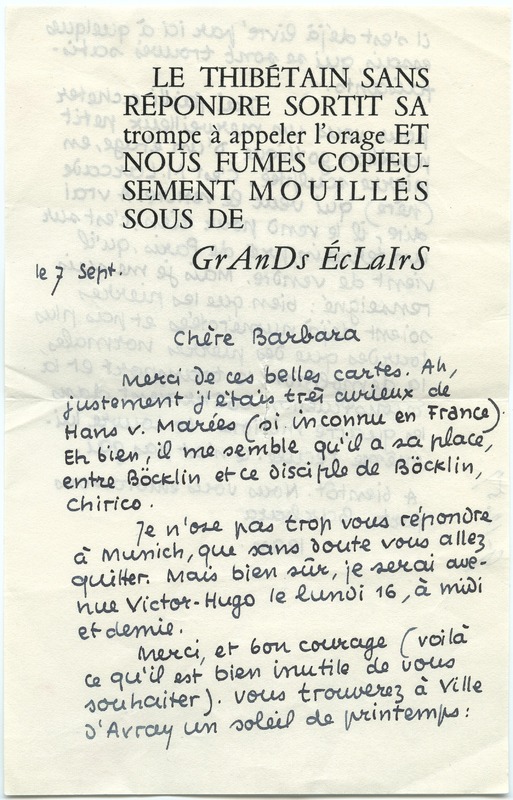 LE THIBÉTAIN SANS
RÉPONDRE SORTIT SA
trompe à appeler l'orage ET
NOUS FUMES COPIEU-
SEMENT MOUILLÉS
SOUS DE
GrAnDs ÉcLaIrS
le 7 Sept.
Chère Barbara
Merci de ces belles cartes. Ah,
justement j'étais très curieux de
Hans v. Marées (si inconnu en France).
Eh bien, il me semble qu'il a sa place,
entre Böcklin et ce disciple de Böcklin,
Chirico.
Je n'ose pas trop vous répondre
à Munich, que sans doute vous allez
quitter. Mais bien sûr, je serai ave-
nue Victor-Hugo le lundi 16, à midi
et demie.
Merci, et bon courage (voilà
ce qu'il est bien inutile de vous
souhaiter). Vous trouverez à Ville
d'Avray un soleil de printemps :